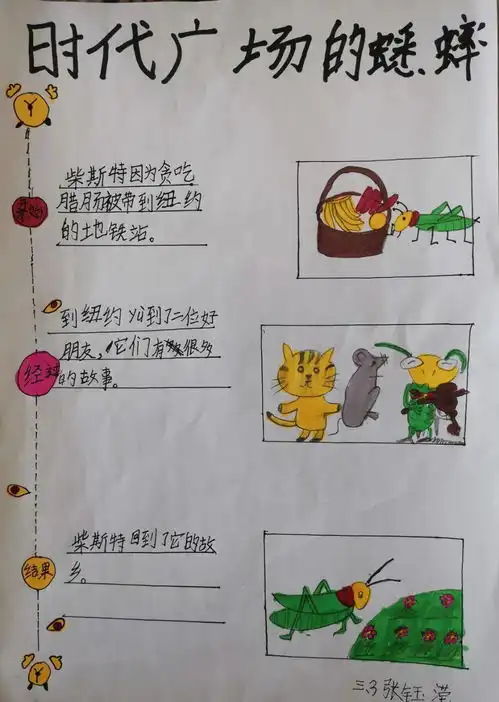 时代广场的蟋蟀
柴斯特因为贪吃
腊肠被带到纽约
的地铁站。
到纽约 到了二位好
朋友，它们有很多
经
的故事。
柴斯特回到了它的故
乡。
结果
三.3 张钰滢